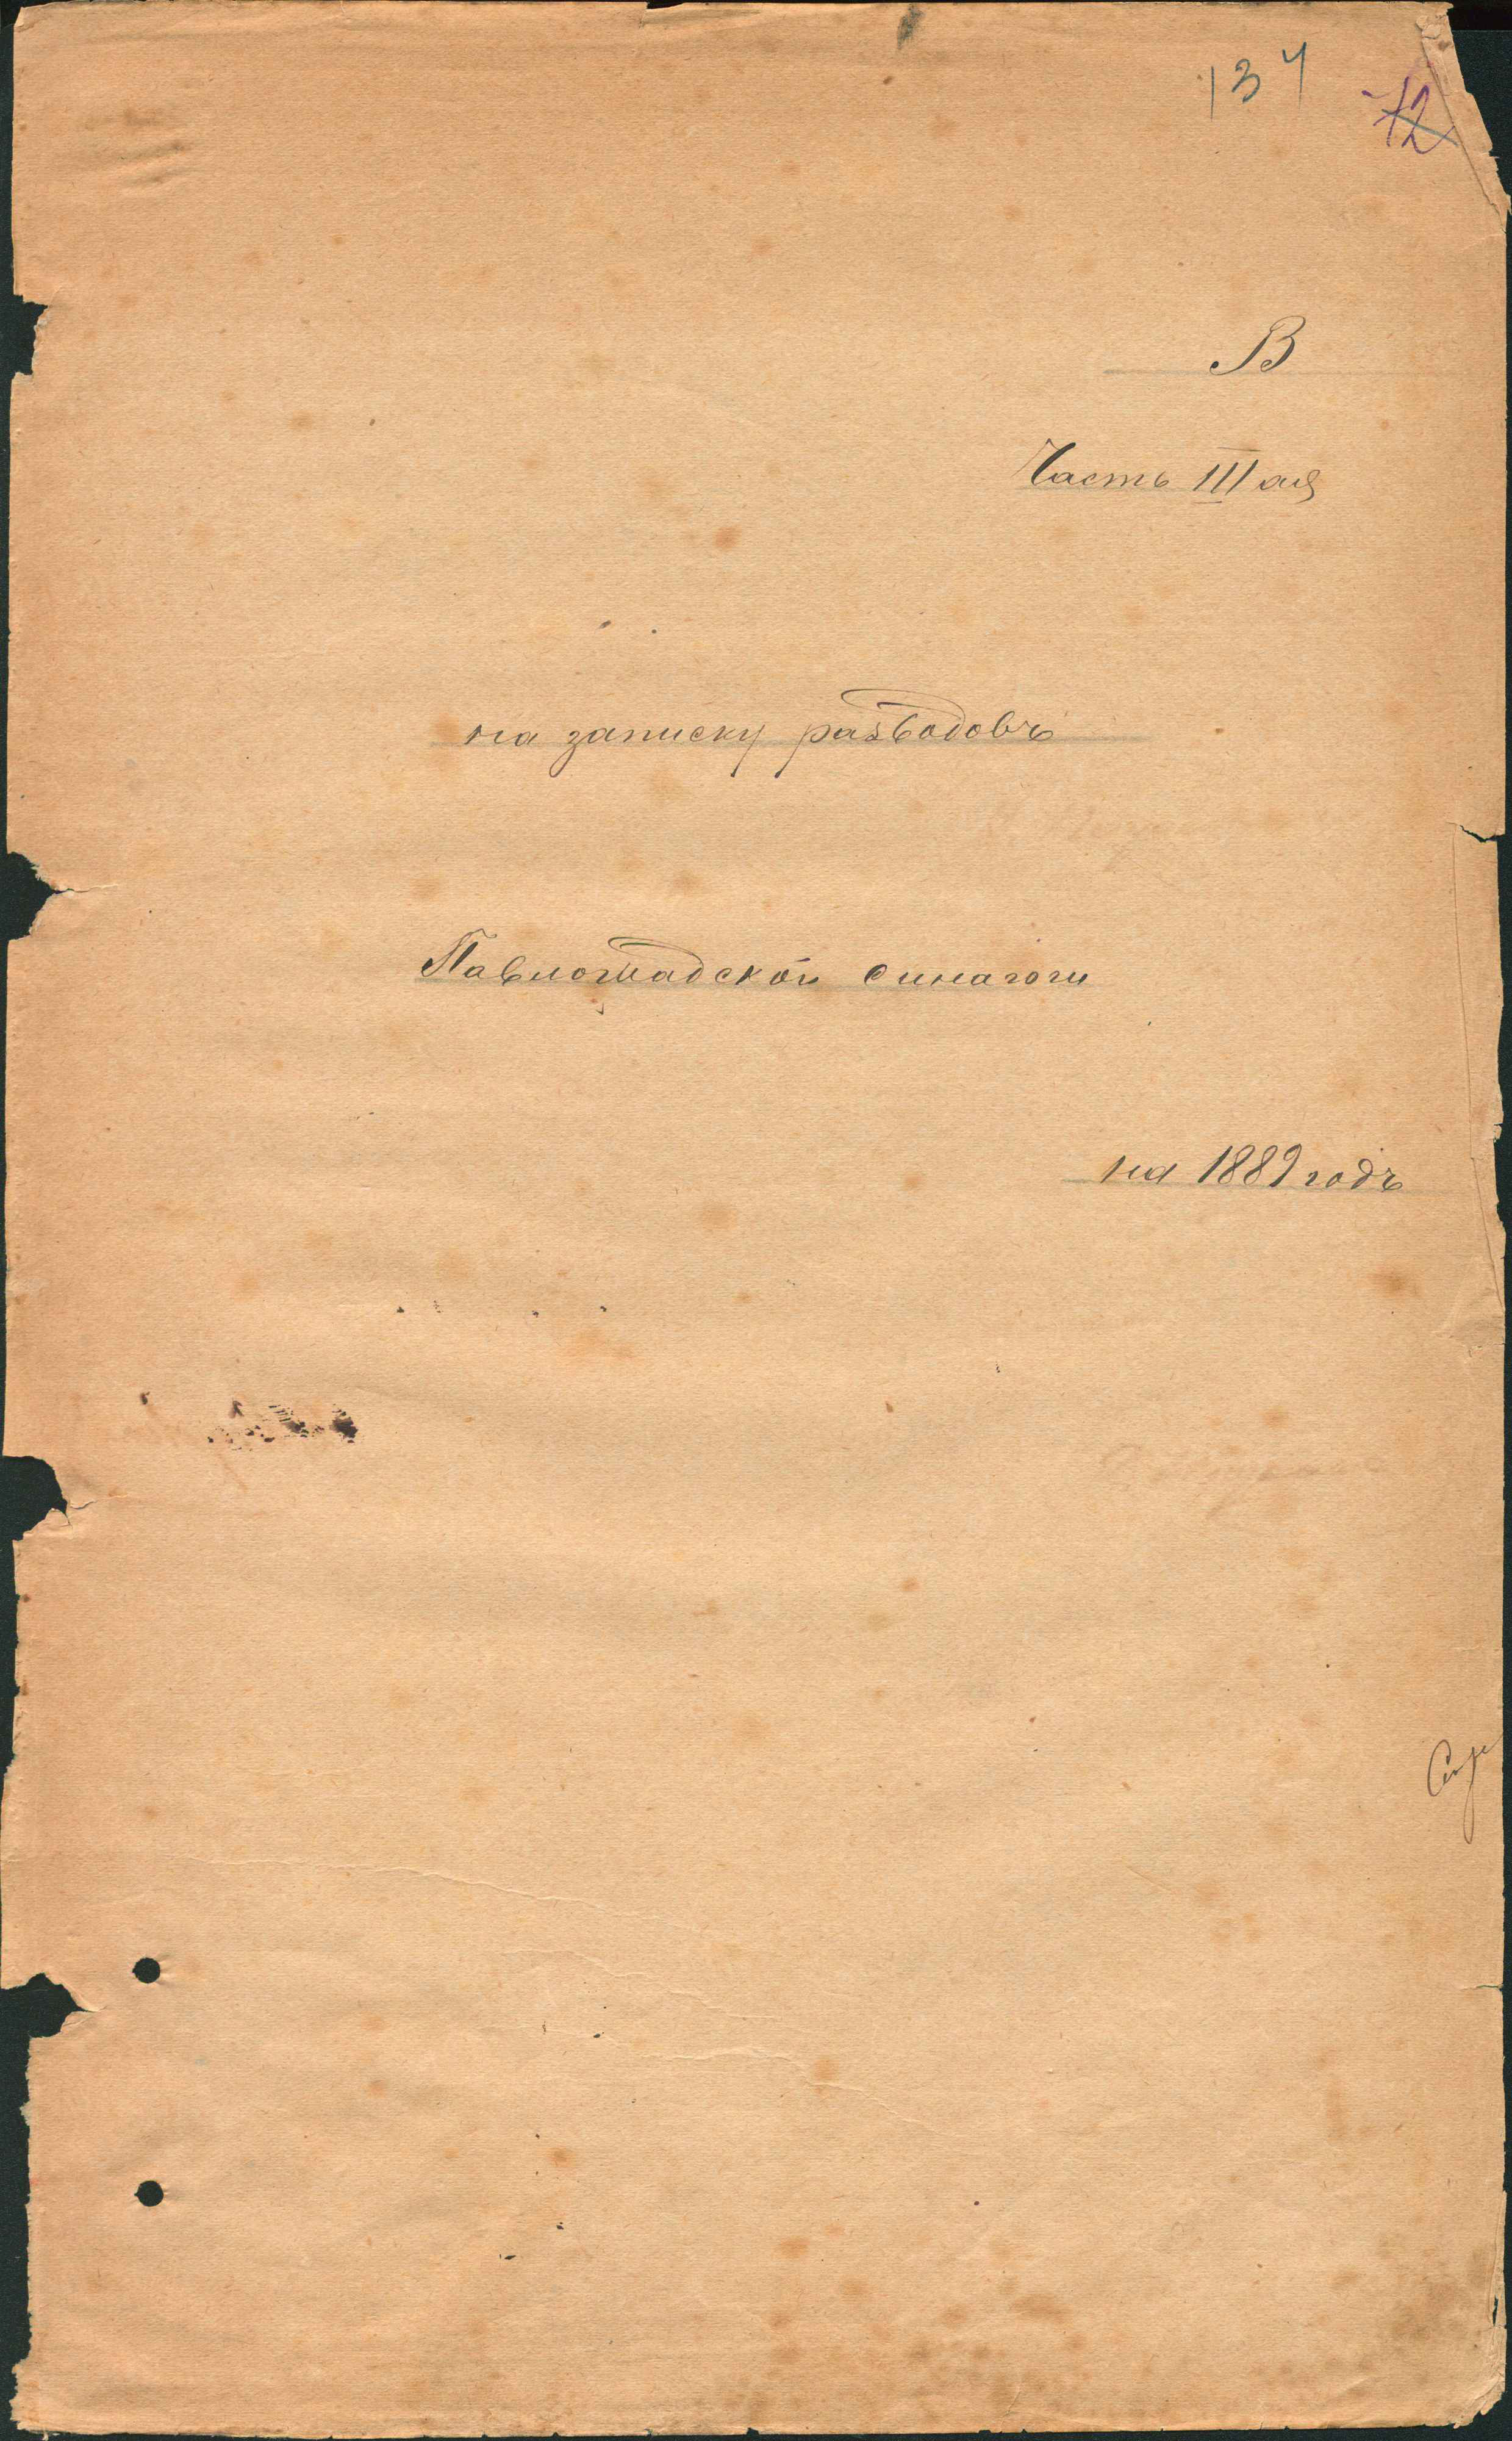 134
72
В
Часть III ая
на записку разводовъ
Павлоградской синагоги
на 1889 годъ